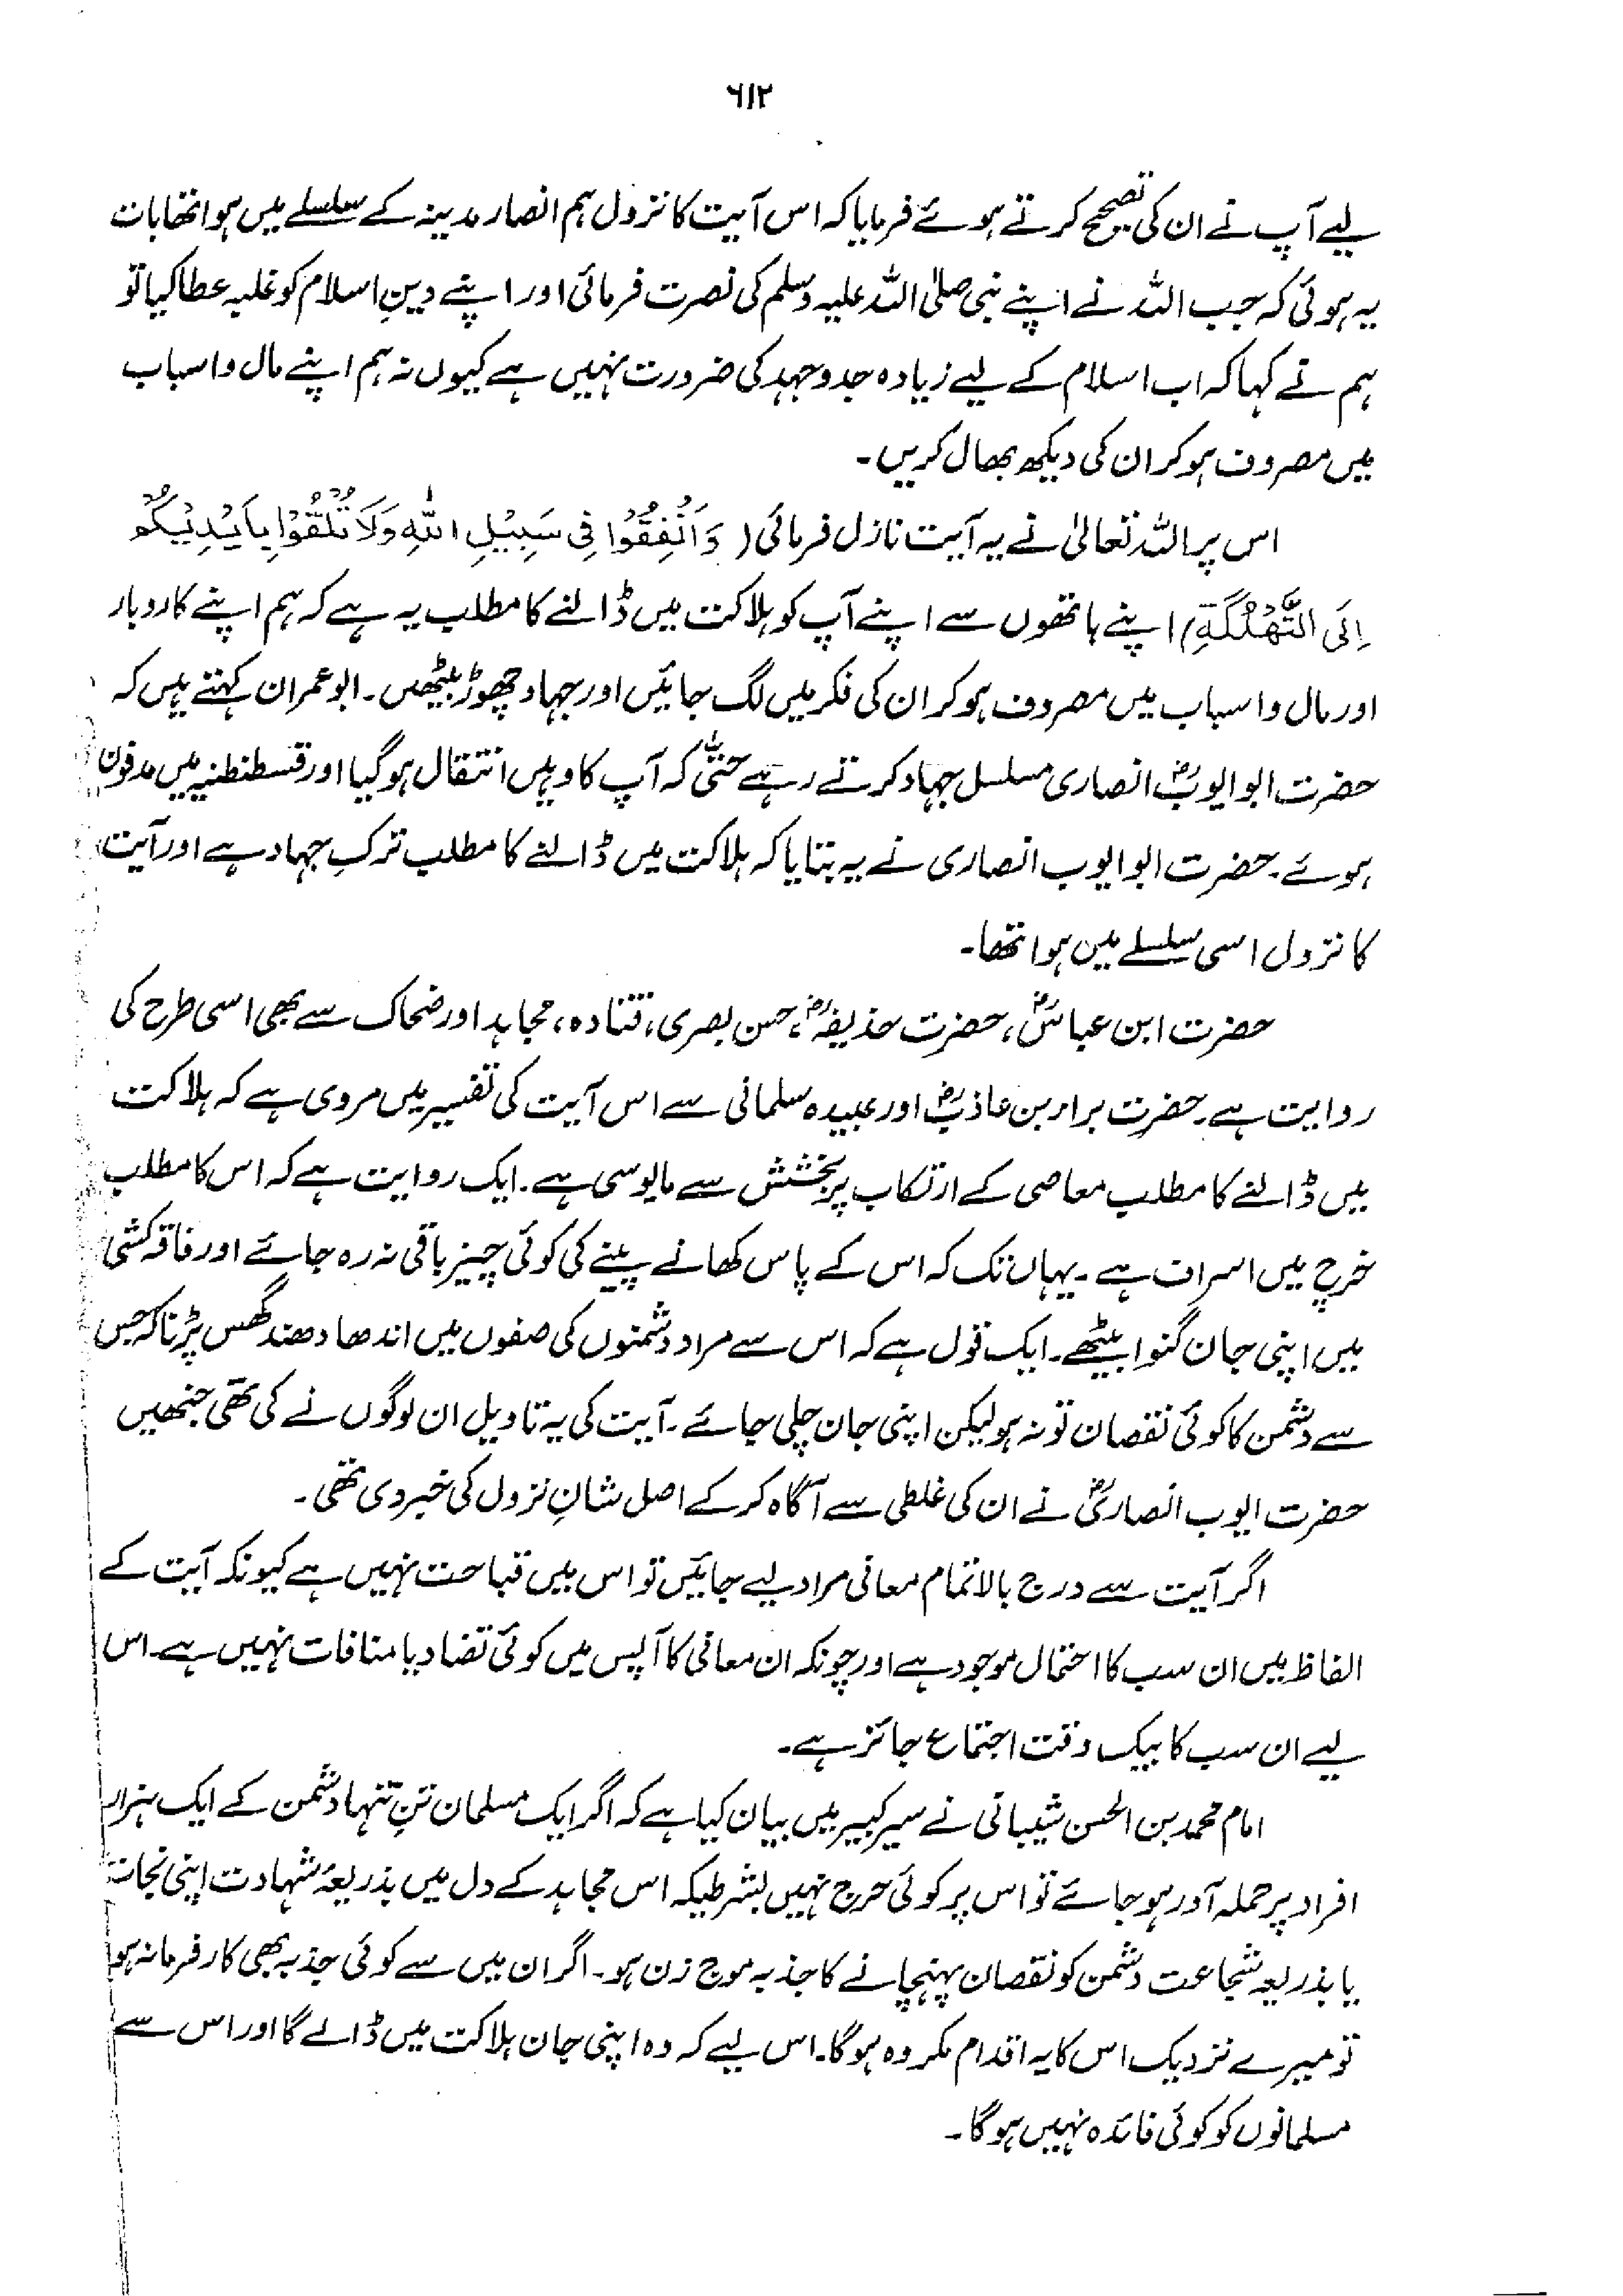 ۶۱۲
لیے آپ نے ان کی تصحیح کرتے ہوئے فرمایا کہ اس آیت کا نزول ہم انصار مدینہ کے سلسلے میں ہوا تھا بات
یہ ہوئی کہ جب اللہ نے اپنے نبی صلی اللہ علیہ وسلم کی نصرت فرمائی اور اپنے دینِ اسلام کو غلبہ عطا کیا تو
ہم نے کہا کہ اب اسلام کے لیے زیادہ جدوجہد کی ضرورت نہیں ہے کیوں نہ ہم اپنے مال و اسباب
میں مصروف ہو کر ان کی دیکھ بھال کریں۔
اس پر اللہ تعالیٰ نے یہ آیت نازل فرمائی (وَأَنْفِقُوْا فِی سَبِیْلِ اللّٰہِ وَلَا تُلْقُوْا بِاَیْدِیْکُمْ
اِلَی التَّھْلُکَۃِ) اپنے ہاتھوں سے اپنے آپ کو ہلاکت میں ڈالنے کا مطلب یہ ہے کہ ہم اپنے کاروبار
اور مال و اسباب میں مصروف ہو کر ان کی فکر میں لگ جائیں اور جہاد چھوڑ بیٹھیں۔ ابو عمران کہتے ہیں کہ
حضرت ابو ایوبؓ انصاری مسلسل جہاد کرتے رہے حتیٰ کہ آپ کا وہیں انتقال ہو گیا اور قسطنطنیہ میں مدفون
ہوئے۔ حضرت ابو ایوب انصاری نے یہ بتایا کہ ہلاکت میں ڈالنے کا مطلب ترکِ جہاد ہے اور آیت
کا نزول اسی سلسلے میں ہوا تھا۔
حضرت ابن عباسؓ، حضرت حذیفہؓ، حسن بصری، قتادہ، مجاہد اور ضحاک سے بھی اسی طرح کی
روایت ہے۔ حضرت براء بن عاذبؓ اور عبیدہ سلمانی سے اس آیت کی تفسیر میں مروی ہے کہ ہلاکت
میں ڈالنے کا مطلب معاصی کے ارتکاب پر بخشش سے مایوسی ہے۔ ایک روایت ہے کہ اس کا مطلب
خرچ میں اسراف ہے۔ یہاں تک کہ اس کے پاس کھانے پینے کی کوئی چیز باقی نہ رہ جائے اور فاقہ کشی
میں اپنی جان گنوا بیٹھے۔ ایک قول ہے کہ اس سے مراد دشمنوں کی صفوں میں اندھا دھند گھس پڑنا کہ جس
سے دشمن کا کوئی نقصان تو نہ ہو لیکن اپنی جان چلی جائے۔ آیت کی یہ تاویل ان لوگوں نے کی تھی جنھیں
حضرت ایوب انصاریؓ نے ان کی غلطی سے آگاہ کر کے اصل شانِ نزول کی خبر دی تھی۔
اگر آیت سے درج بالا تمام معانی مراد لیے جائیں تو اس میں قباحت نہیں ہے کیونکہ آیت کے
الفاظ میں ان سب کا احتمال موجود ہے اور چونکہ ان معانی کا آپس میں کوئی تضاد یا منافات نہیں ہے۔ اس
لیے ان سب کا بیک وقت اجتماع جائز ہے۔
امام محمد بن الحسن شیبانی نے سیر کبیر میں بیان کیا ہے کہ اگر ایک مسلمان تنِ تنہا دشمن کے ایک ہزار
افراد پر حملہ آور ہو جائے تو اس پر کوئی حرج نہیں بشرطیکہ اس مجاہد کے دل میں بذریعۂ شہادت اپنی نجات
یا بذریعہ شجاعت دشمن کو نقصان پہنچانے کا جذبہ موج زن ہو۔ اگر ان میں سے کوئی جذبہ بھی کار فرما نہ ہو
تو میرے نزدیک اس کا یہ اقدام مکروہ ہو گا۔ اس لیے کہ وہ اپنی جان ہلاکت میں ڈالے گا اور اس سے
مسلمانوں کو کوئی فائدہ نہیں ہو گا۔